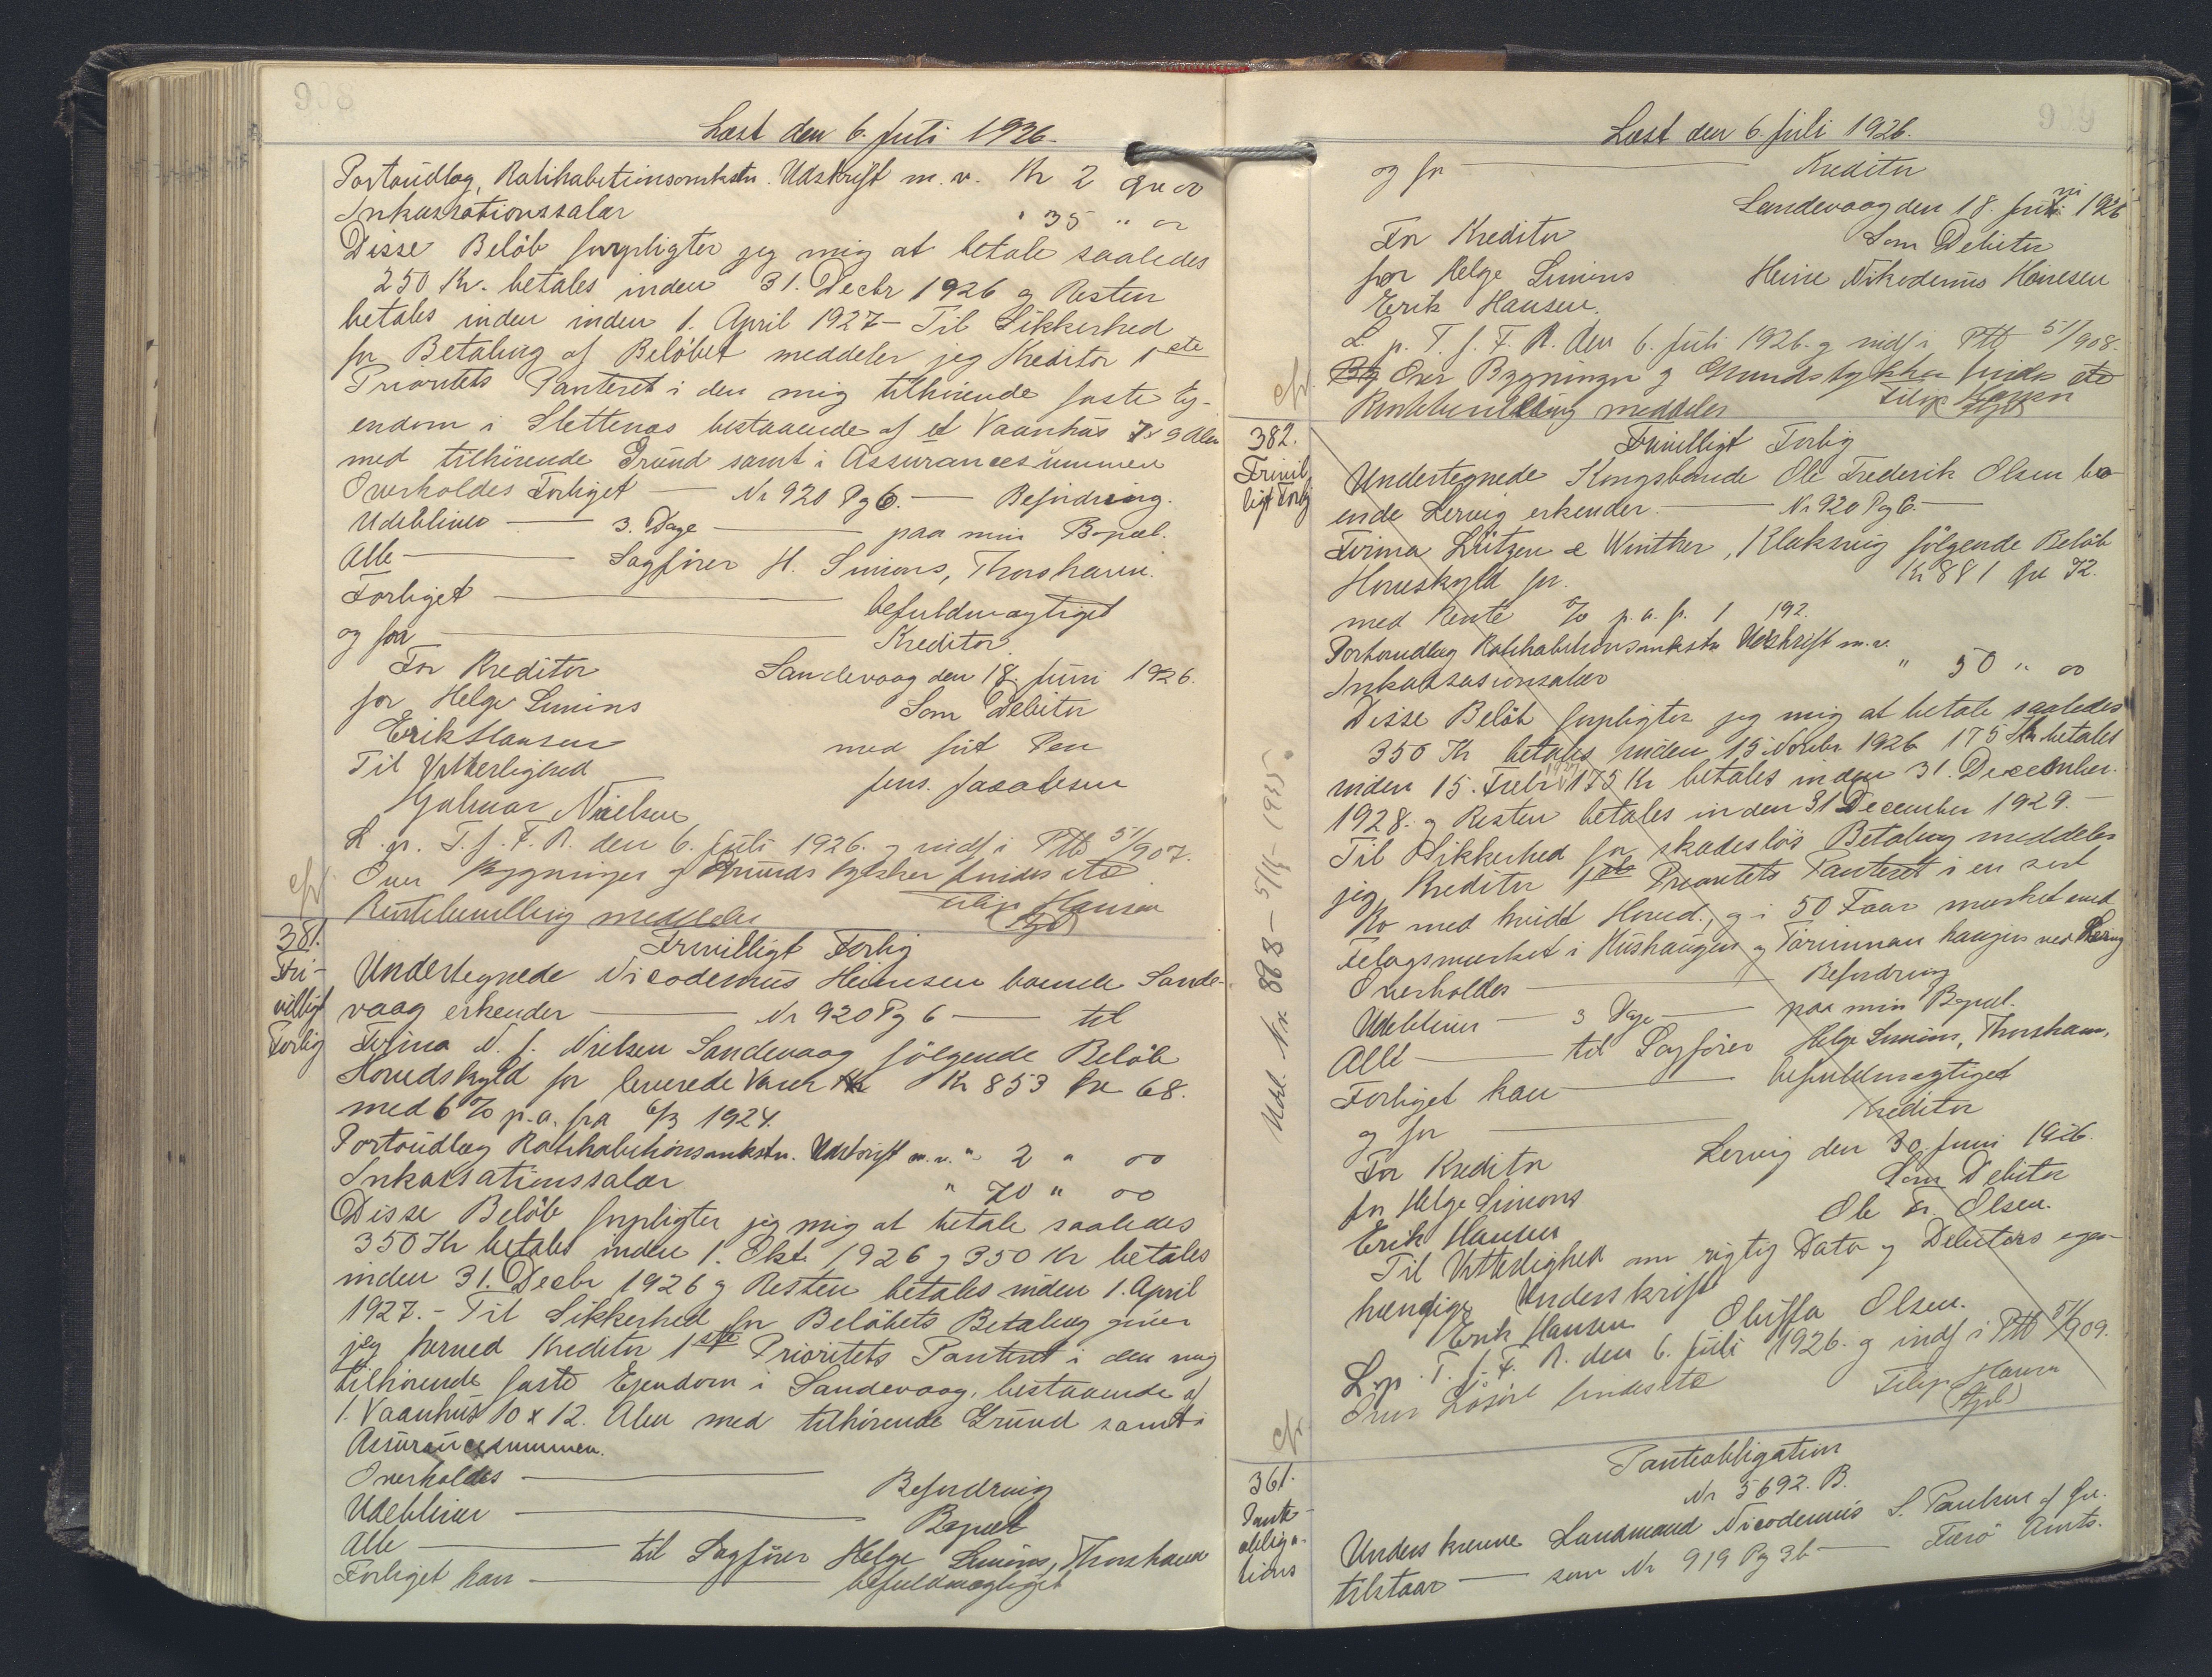 908
Læst den 6. Juli 1926.
Portoudlæg, Ratihabitionsomkstn. Udskrift m. v. Kr 2 Øre 00
Inkassationssalær " 35 " 00
Disse Beløb forpligter jeg mig at betale saaledes
250 Kr. betales inden 31. Decbr 1926 og Resten
betales inden inden 1. April 1927 - Til Sikkerhed
for Betaling af Beløbet meddeler jeg Kreditor 1ste
Prioritets Panteret i den mig tilhørende faste Ej-
endom i Slettenæs bestaaende af et Vaanhus 7 x 9 Alen
med tilhørende Grund samt i Assurancesummen
Overholdes Forliget — Nr 920 Pg 6. — Befordring.
Udebliver — 3. Dage — paa min Bopæl.
Alle — Sagfører H. Simons, Thorshavn.
Forliget — befuldmægtiget
og for — Kreditor.
For Kreditor Sandevaag den 18. Juni 1926.
for Helge Simons Som Debitor
Erik Hansen med ført Pen
Til Vitterlighed Jens. Jacobsen
Hjalmar Nielsen
L. p. T. f. F. R. den 6. Juli 1926. og indf i Ptb 51/907.
Over Bygninger og Grundstykker findes etc
Rentebevilling meddeles Filip Hansen
cfr.
381.
Fri-
villigt
Forlig
Frivilligt Forlig
Undertegnede Nicodemus Heinesen boende Sande-
vaag erkender — Nr 920 Pg 6 — til
Firma N. J. Nielsen Sandevaag følgende Beløb
Hovedskyld for leverede Varer Kr Kr 853 Øre 68.
med 6 % p.a. fra 6/3 1924.
Portoudlæg Ratihabitionsomkstn. Udskrift m. v. " 2 " 00
Inkassationssalær " 70 " 00
Disse Beløb forpligter jeg mig at betale saaledes
350 Kr betales inden 1. Okt. 1926 og 350 Kr betales
inden 31. Decbr 1926 og Resten betales inden 1. April
1927. - Til Sikkerhed for Beløbets Betaling giver
jeg herved Kreditor 1ste Prioritets Panteret i den mig
tilhørende faste Ejendom i Sandevaag, bestaaende af
1. Vaanhus 10 x 12. Alen med tilhørende Grund samt i
Assurancesummen.
Overholdes — Befordring
Udebliver — Bopæl
Alle — til Sagfører Helge Simons, Thorshavn
Forliget kan — befuldmægtiget
909
Læst den 6. Juli 1926.
og for — Kreditor
Sandevaag den 18. Juni 1926
For Kreditor Som Debitor
for Helge Simons Heine Nikodemus Heinesen
Erik Hansen.
L. p. T. f. F. R. den 6. Juli 1926. og indf i Ptb 51/908.
Over Bygninger og Grundstykker findes etc
Rentebevilling meddeles Filip Hansen
cfr.
382.
Frivil
ligt Forlig
Frivilligt Forlig
Undertegnede Kongsbonde Ole Frederik Olsen bo-
ende Lervig erkender. — Nr 920 Pg 6. —
Firma Lützen & Winther, Klaksvig følgende Beløb
Hovedskyld for. Kr 881 Øre 72.
med Rente % p. a. fr. 1 192.
Portoudlæg Ratihabitionsomkstn Udskrift m. v.
Inkassasionsalær " 50 " 00
Disse Beløb forpligter jeg mig at betale saaledes
350 Kr betales inden 15 Novbr 1926 175 Kr betales
inden 15. Febr 1927 175 Kr betales inden 31. December.
1928. og Resten betales inden 31 December 1929. -
Til Sikkerhed for skadesløs Betaling meddeles
jeg Kreditor 1ste Prioritets Panteret i en sort
Ko med hvidt Hoved, og i 50 Faar mærket med
Felagsmærket i Hushaugen og haugen ved Lervig
Overholdes — Befordring
Udebliver — 3 Dage — paa min Bopæl.
Alle — til Sagfører Helge Simons, Thorshavn,
Forliget kan — befuldmægtiget
og for — Kreditor
For Kreditor Lervig den 30 Juni 1926.
for Helge Simons Som Debitor
Erik Hansen Ole Fr. Olsen.
Til Vitterlighed om rigtig Dato og Debitors egen-
hændige Underskrift
Erik Hansen Oluffa Olsen.
L. p. T. f. F. R. den 6. Juli 1926. og indf i Ptb 51/909.
Over Løsøre findes etc Filip Hansen
Udsl. Nr. 883 - 5/11 - 1935.
cfr.
361.
Pante-
obliga-
tions
Panteobligation
Nr 5692. B.
Underskrevne Landmand Nicodemus S. Poulsen af Gø.
tilstaar — som Nr 919 Pg 36 — Færø Amts.